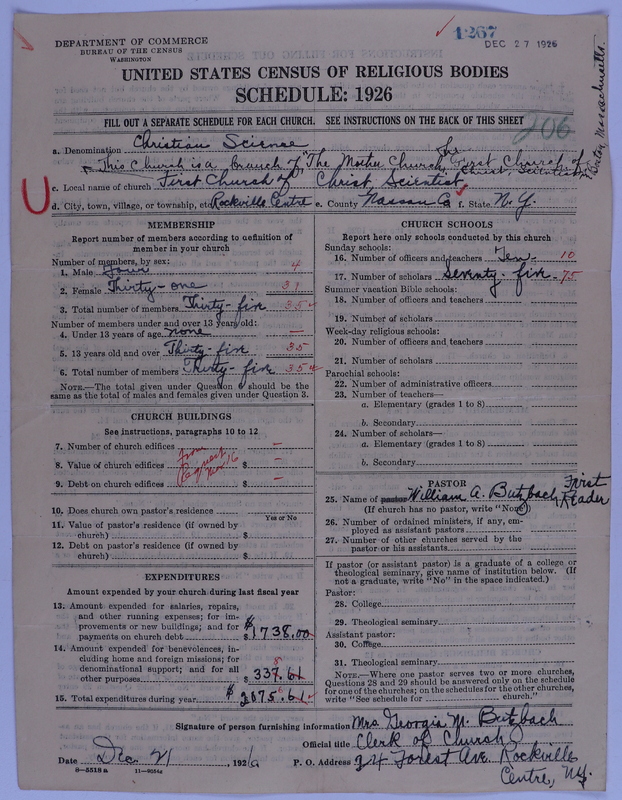 1267
DEC 27 1926
DEPARTMENT OF COMMERCE
BUREAU OF THE CENSUS
WASHINGTON
UNITED STATES CENSUS OF RELIGIOUS BODIES
SCHEDULE: 1926
FILL OUT A SEPARATE SCHEDULE FOR EACH CHURCH. SEE INSTRUCTIONS ON THE BACK OF THIS SHEET
206
a. Denomination Christian Science
This Church is a Branch of "The Mother Church, The First Church of Christ, Scientist,
Boston, Massachusetts.
c. Local name of church First Church of Christ Scientist
d. City, town, village, or township, etc. Rockville Centre e. County Nassau Co f. State N.Y.
MEMBERSHIP
Report number of members according to definition of
member in your church
Number of members, by sex:
1. Male Four 4
2. Female Thirty-one 31
3. Total number of members Thirty-five 35
Number of members under and over 13 years old:
4. Under 13 years of age none —
5. 13 years old and over Thirty-five 35
6. Total number of members Thirty-five 35
NOTE.—The total given under Question 6 should be the
same as the total of males and females given under Question 3.
CHURCH BUILDINGS
See instructions, paragraphs 10 to 12
7. Number of church edifices —
8. Value of church edifices $ —
9. Debt on church edifices $ —
10. Does church own pastor's residence
Yes or No
11. Value of pastor's residence (if owned by
church) $
12. Debt on pastor's residence (if owned by
church) $
EXPENDITURES
Amount expended by your church during last fiscal year
13. Amount expended for salaries, repairs,
and other running expenses; for im-
provements or new buildings; and for
payments on church debt $ 1738.00
14. Amount expended for benevolences, in-
cluding home and foreign missions; for
denominational support; and for all
other purposes $ 337.61
15. Total expenditures during year $ 2075.61
CHURCH SCHOOLS
Report here only schools conducted by this church
Sunday schools:
16. Number of officers and teachers Ten- 10
17. Number of scholars Seventy-five- 75
Summer vacation Bible schools:
18. Number of officers and teachers
19. Number of scholars
Week-day religious schools:
20. Number of officers and teachers
21. Number of scholars
Parochial schools:
22. Number of administrative officers
23. Number of teachers—
a. Elementary (grades 1 to 8)
b. Secondary
24. Number of scholars—
a. Elementary (grades 1 to 8)
b. Secondary
PASTOR
25. Name of pastor William A. Butzbach First Reader
(If church has no pastor, write "None")
26. Number of ordained ministers, if any, em-
ployed as assistant pastors
27. Number of other churches served by the
pastor or his assistants
If pastor (or assistant pastor) is a graduate of a college or
theological seminary, give name of institution below. (If
not a graduate, write "No" in the space indicated.)
Pastor:
28. College
29. Theological seminary
Assistant pastor:
30. College
31. Theological seminary
NOTE.—Where one pastor serves two or more churches,
Questions 28 and 29 should be answered only on the schedule
for one of the churches; on the schedules for the other churches,
write "See schedule for church."
Signature of person furnishing information Mrs Georgia M. Butzbach
Official title Clerk of Church
Date Dec 21, 1926 P. O. Address 34 Forest Ave. Rockville
Centre, N.Y.
8—5518 a 11—9034a